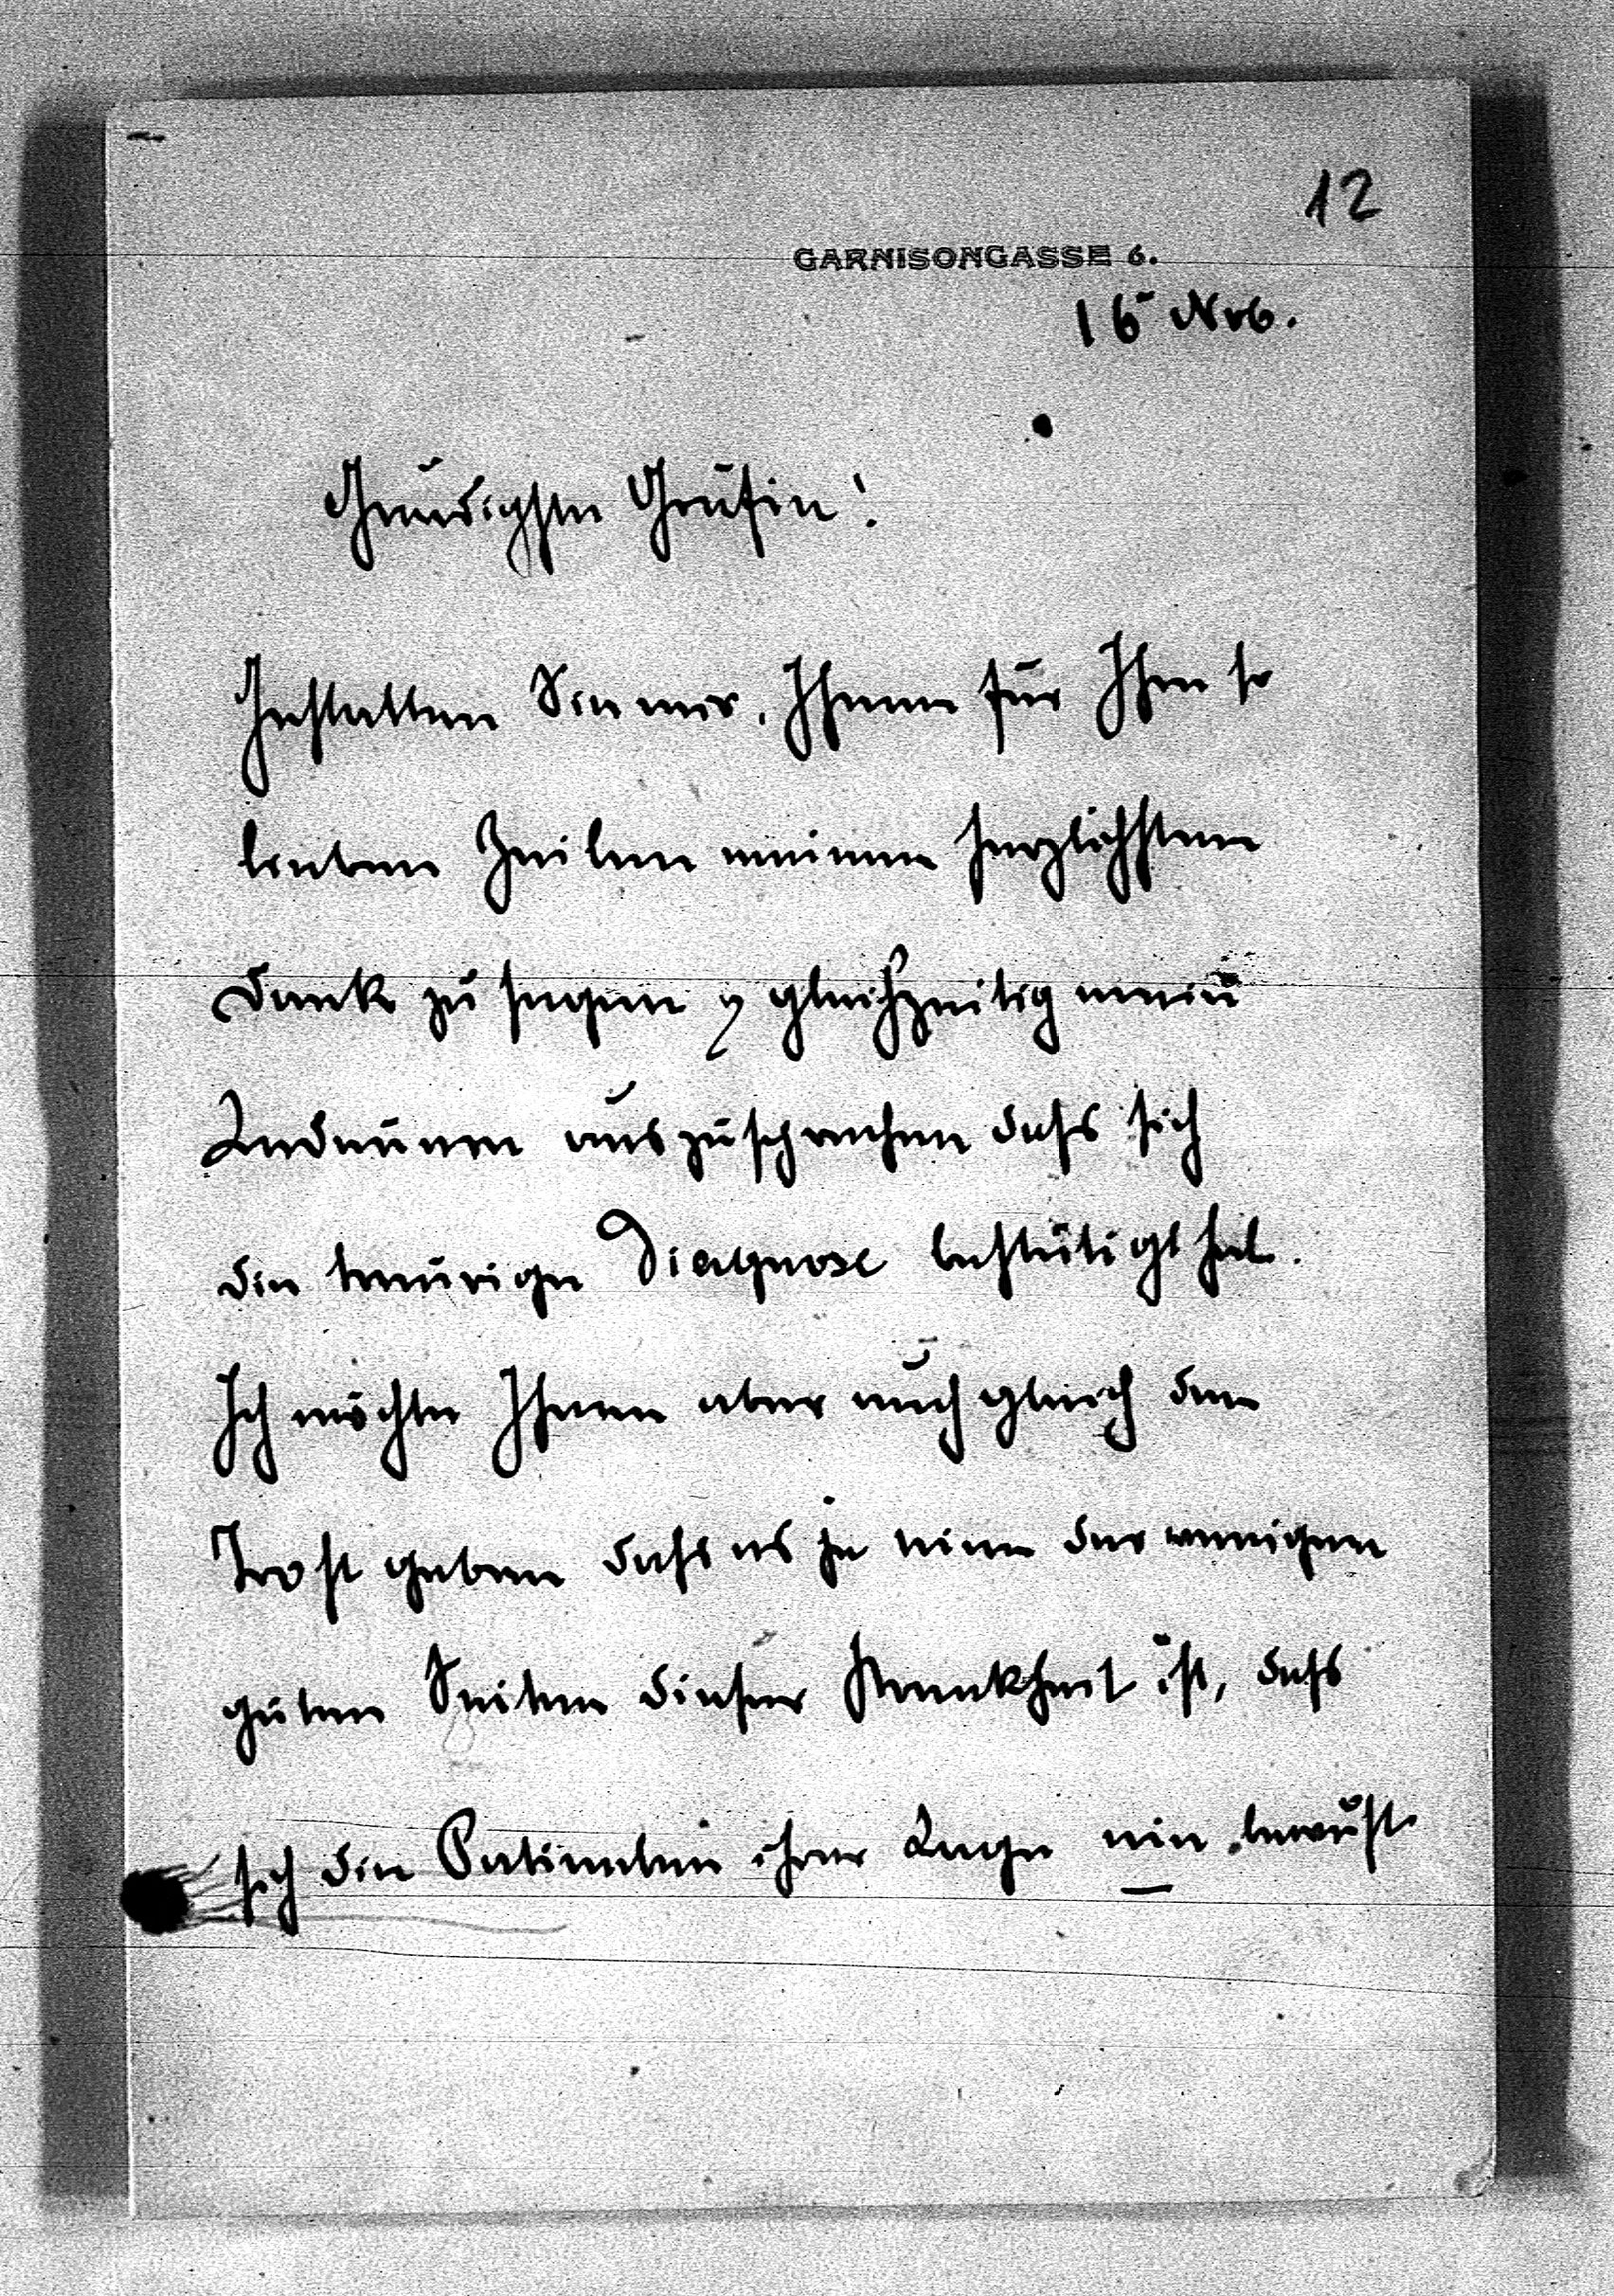 12
GARNISONGASSE 6.
16 Nov.
Gnädigste Gräfin!
Gestatten Sie mir, Ihnen für Ihre so
lieben Zeilen meinen herzlichsten
Dank zu sagen & gleichzeitig mein
Bedauern auszusprechen dass sich
die traurige Diagnose bestätigt hat.
Ich möchte Ihnen aber auch gleich den
Trost geben dass es ja eine der wenigen
guten Seiten dieser Krankheit ist, dass
sich die Patienten ihrer Lage nie bewußt